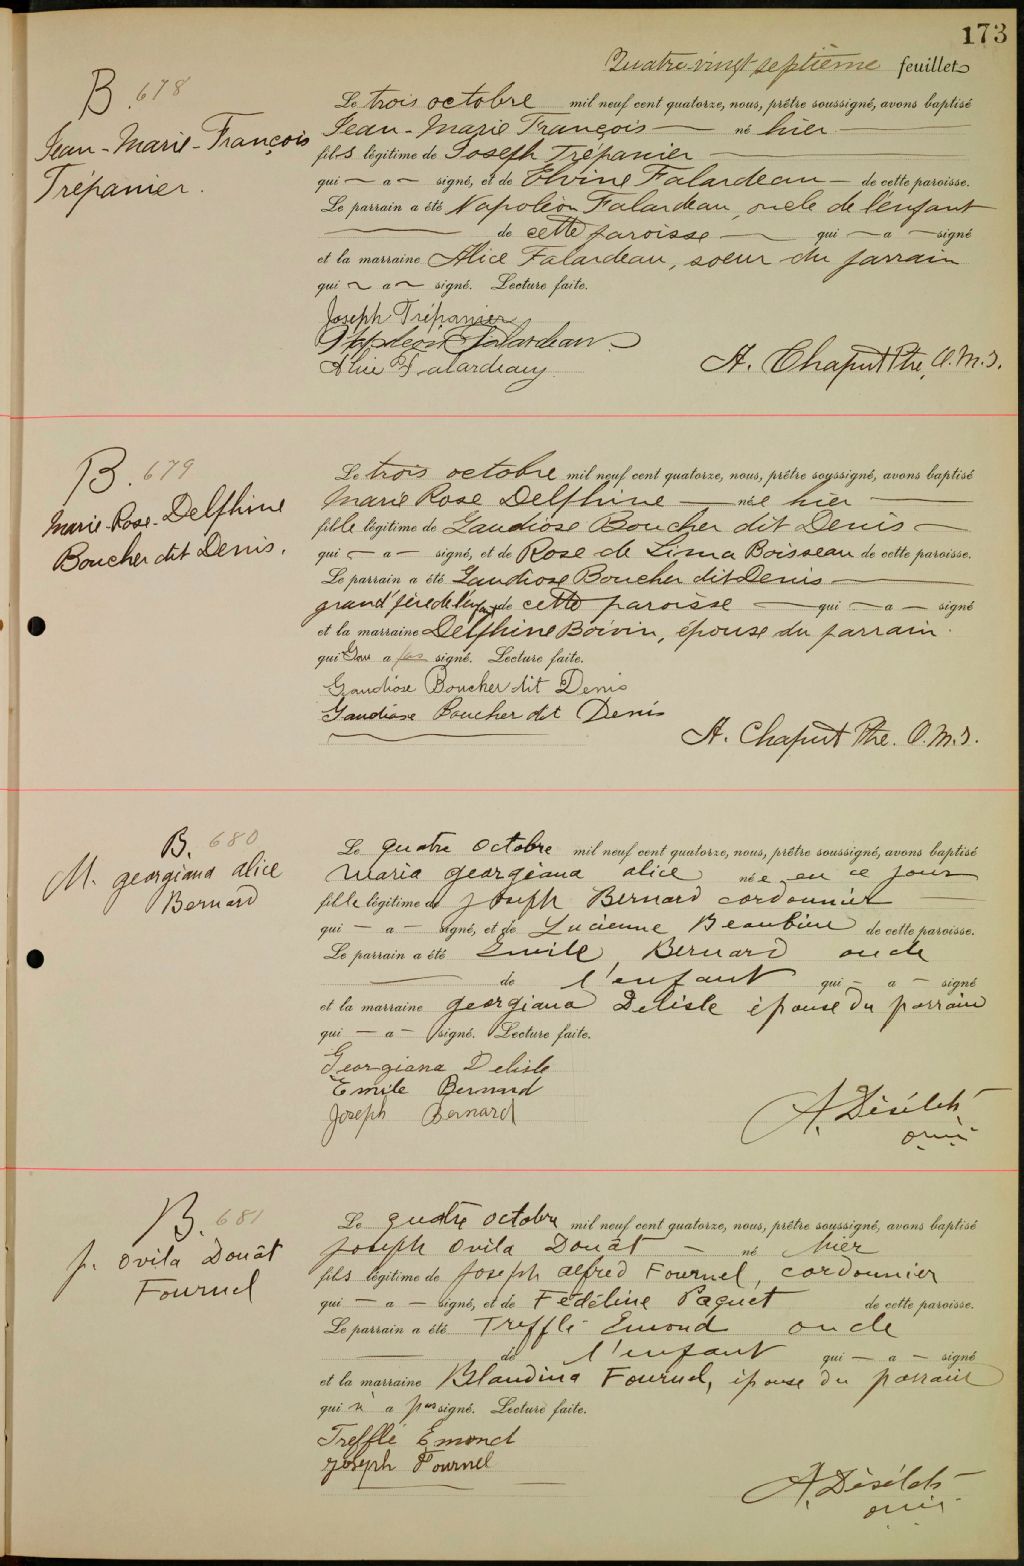 173
Quatre-vingt septième feuillet
B. 678
Jean-Marie-François
Trépanier.
Le trois octobre mil neuf cent quatorze, nous, prêtre soussigné, avons baptisé
Jean-Marie François — né hier —
fils légitime de Joseph Trépanier —
qui — a — signé, et de Elvine Falardeau — de cette paroisse.
Le parrain a été Napoléon Falardeau, oncle de l'enfant
— de cette paroisse — qui — a — signé
et la marraine Alice Falardeau, soeur du parrain
qui ~ a ~ signé. Lecture faite.
Joseph Trépanier
Napoléon Falardeau
Alice Falardeau
A. Chaput Ptre, O.M.I.
B. 679
Marie-Rose-Delphine
Boucher dit Denis.
Le trois octobre mil neuf cent quatorze, nous, prêtre soussigné, avons baptisé
Marie Rose Delphine — née hier —
fille légitime de Gaudiose Boucher dit Denis —
qui — a — signé, et de Rose de Lima Boisseau de cette paroisse.
Le parrain a été Gaudiose Boucher dit Denis —
grand'père de l'enfant de cette paroisse — qui — a — signé
et la marraine Delphine Boivin, épouse du parrain.
qui a pas signé. Lecture faite.
Gaudiose Boucher dit Denis
Gaudiose Boucher dit Denis
A. Chaput Ptre. O.M.I.
B. 680
M. georgiana alice
Bernard
Le quatre octobre mil neuf cent quatorze, nous, prêtre soussigné, avons baptisé
Maria georgiana alice née en ce jour
fille légitime de Joseph Bernard cordonnier —
qui — a — signé, et de Lucienne Beaubien de cette paroisse.
Le parrain a été Emile Bernard oncle
— de l'enfant qui — a — signé
et la marraine georgiana Delisle épouse du parrain
qui — a — signé. Lecture faite.
Georgiana Delisle
Emile Bernard
Joseph Bernard
A. Désilets
omi
B. 681
J. Ovila Donât
Fournel
Le quatre octobre mil neuf cent quatorze, nous, prêtre soussigné, avons baptisé
Joseph Ovila Donât — né hier
fils légitime de Joseph alfred Fournel, cordonnier
qui — a — signé, et de Fédéline Paquet de cette paroisse.
Le parrain a été Trefflé Emond oncle
— de l'enfant qui — a — signé
et la marraine Blandina Fournel, épouse du parrain
qui n' a pas signé. Lecture faite.
Trefflé Emond
Joseph Fournel
A. Désilets
omi